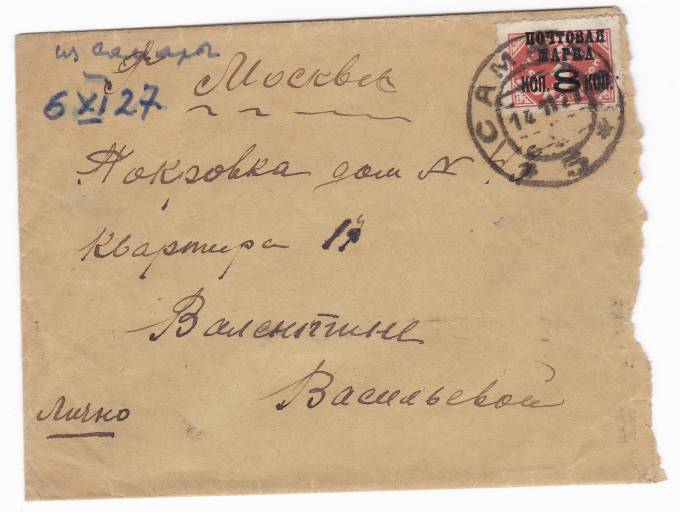 из Самары
6 XI 27
г. Москва
Покровка дом №
квартира 17
Валентине
Васильевой
Лично
ПОЧТОВАЯ
МАРКА
КОП. 8 КОП.
САМ
14 11 27